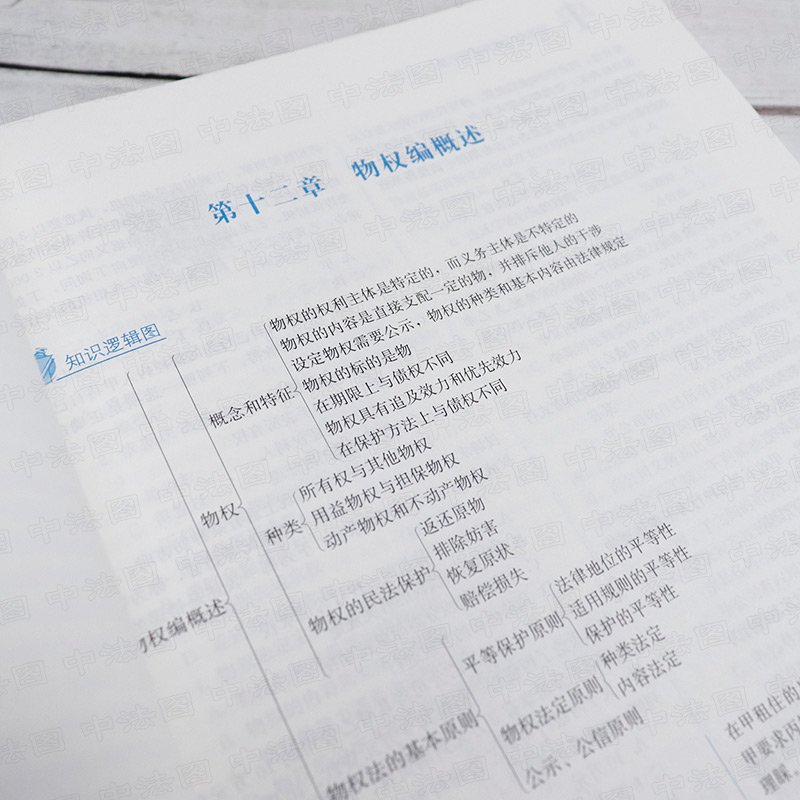 第十二章 物权编概述
知识逻辑图
物权的权利主体是特定的，而义务主体是不特定的
物权的内容是直接支配一定的物，并排斥他人的干涉
设定物权需要公示，物权的种类和基本内容由法律规定
概念和特征
物权的标的是物
在期限上与债权不同
物权具有追及效力和优先效力
在保护方法上与债权不同
物权
种类
所有权与其他物权
用益物权与担保物权
动产物权和不动产物权
物权的民法保护
返还原物
排除妨害
恢复原状
赔偿损失
权编概述
物权法的基本原则
平等保护原则
法律地位的平等性
适用规则的平等性
保护的平等性
物权法定原则
种类法定
内容法定
公示、公信原则
在甲租住的
甲要求丙
理睬。
中法图